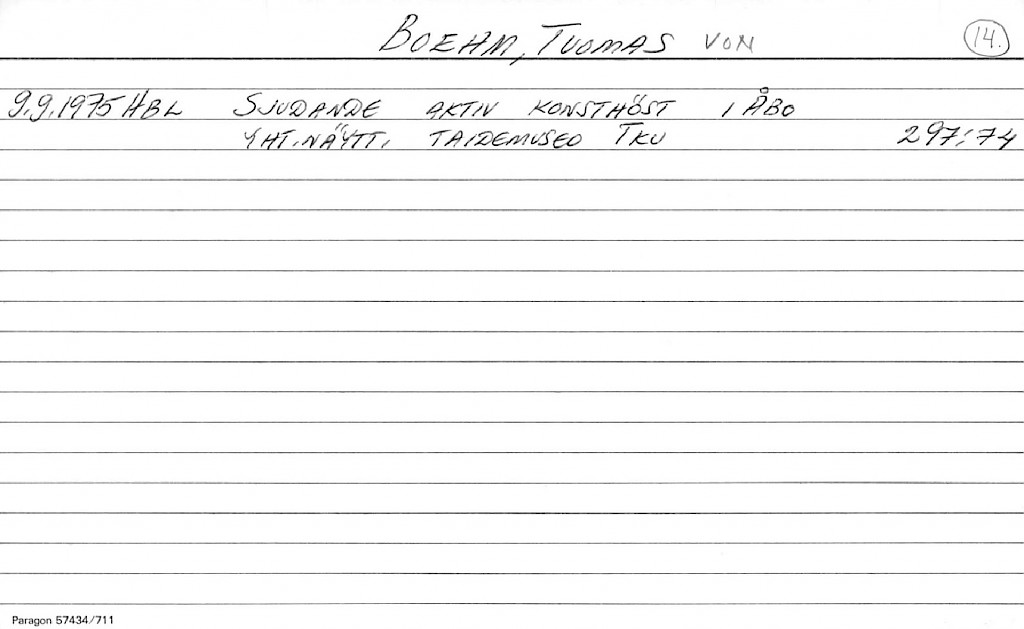 BOEHM, TUOMAS VON 14.
9.9.1975 HBL SJUDANDE AKTIV KONSTHÖST I ÅBO
YHT.NÄYTT. TAIDEMUSEO TKU 297:74
Paragon 57434/711